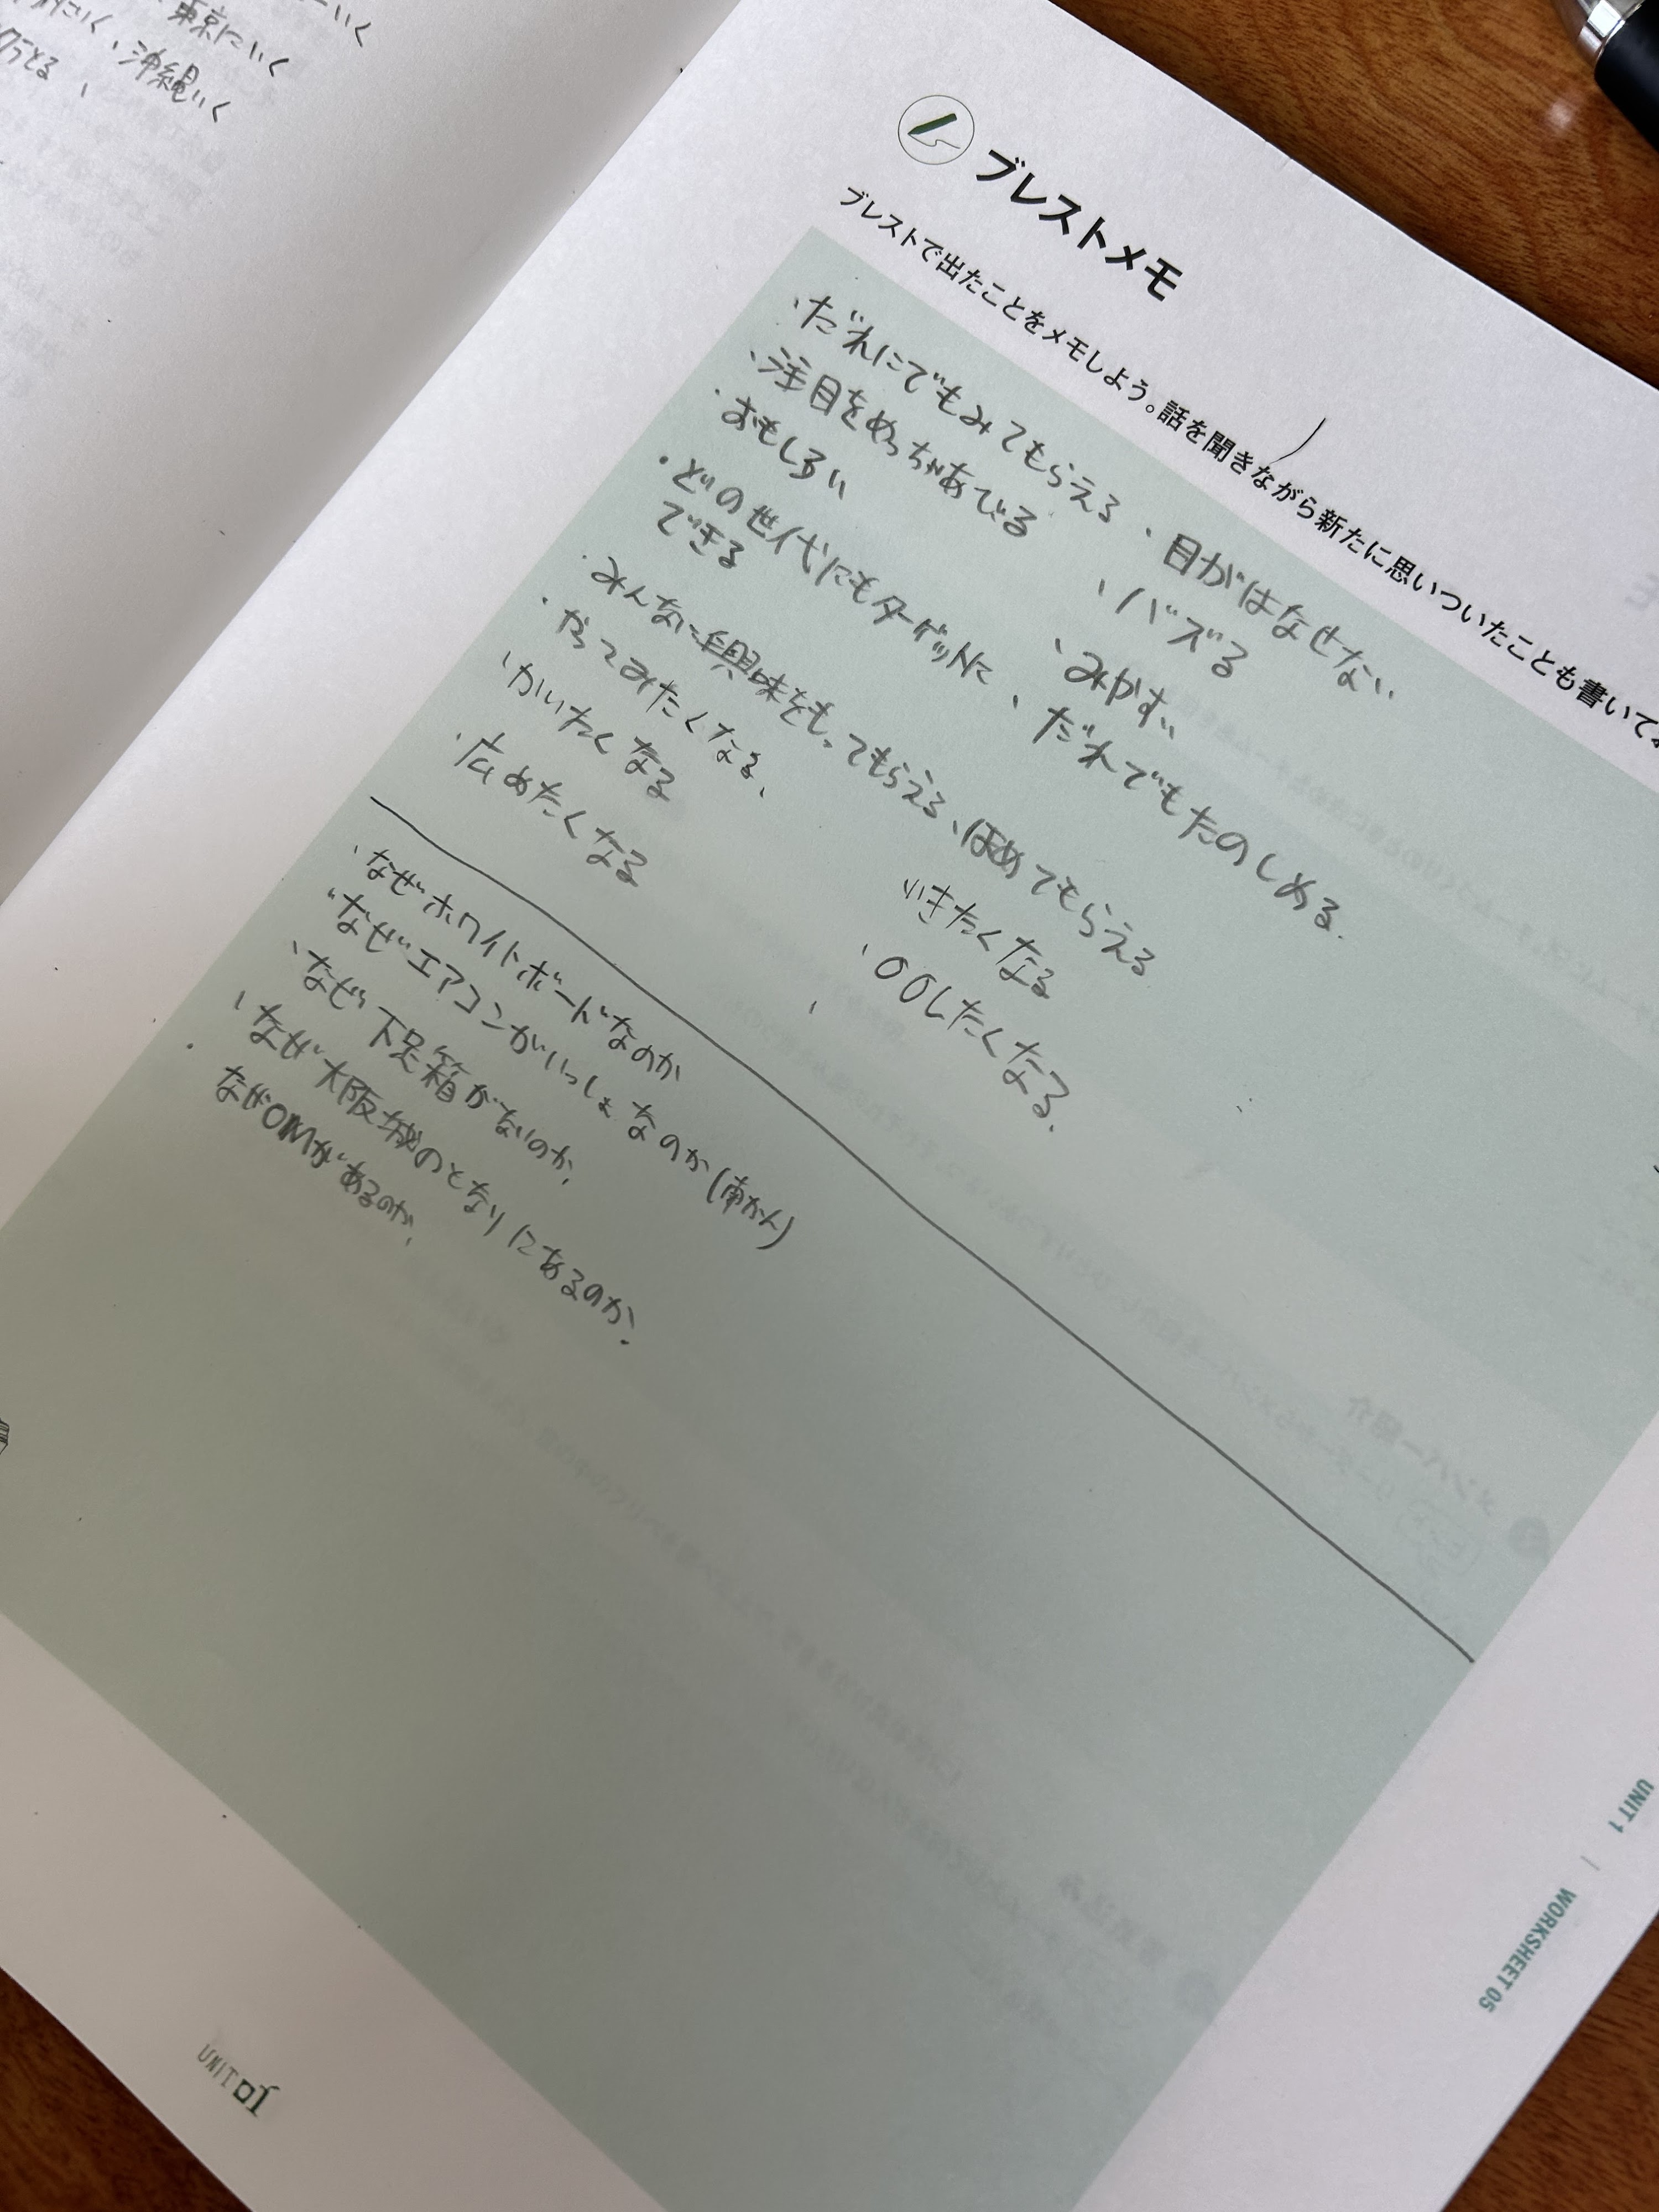 いく
東京にいく
にいく、沖縄いく
とる、
ブレストメモ
ブレストで出たことをメモしよう。話を聞きながら新たに思いついたことも書いて
・だれにでもみてもらえる ・目がはなせない
・注目をめっちゃあびる ・バズる
・おもしろい ・みやすい
・どの世代にもターゲットに、だれでもたのしめる。
できる
・みんなに興味をもってもらえる、ほめてもらえる
・やってみたくなる、 いきたくなる
・かいたくなる ・〇〇したくなる。
・広めたくなる
・なぜホワイトボードなのか
・なぜエアコンがいっしょなのか(南かん)
・なぜ下足箱がないのか、
・なぜ大阪城のとなりにあるのか、
・なぜOMがあるのか、
UNIT 1 | WORKSHEET 05
UNIT 01